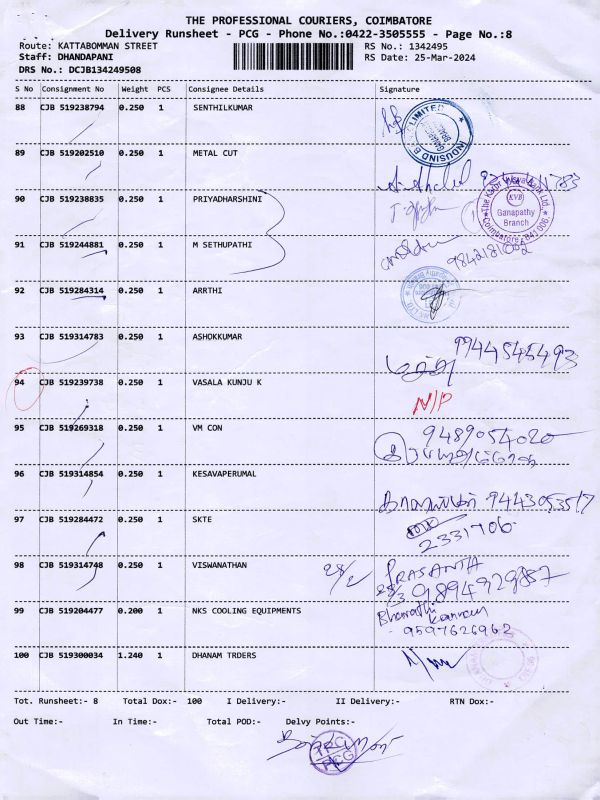 THE PROFESSIONAL COURIERS, COIMBATORE
Delivery Runsheet - PCG - Phone No.:0422-3505555 - Page No.:8
Route: KATTABOMMAN STREET RS No.: 1342495
Staff: DHANDAPANI RS Date: 25-Mar-2024
DRS No.: DCJB134249508
S No Consignment No Weight PCS Consignee Details Signature
88 CJB 519238794 0.250 1 SENTHILKUMAR
LIMITED
INDUSIND B
89 CJB 519202510 0.250 1 METAL CUT
90 CJB 519238835 0.250 1 PRIYADHARSHINI
The Karur Vysya Bank Ltd.
KVB
Ganapathy
Branch
Coimbatore - 641 006.
91 CJB 519244881 0.250 1 M SETHUPATHI
92 CJB 519284314 0.250 1 ARRTHI
93 CJB 519314783 0.250 1 ASHOKKUMAR
9944545493
94 CJB 519239738 0.250 1 VASALA KUNJU K
N/P
95 CJB 519269318 0.250 1 VM CON
9489054020
96 CJB 519314854 0.250 1 KESAVAPERUMAL
9443053517
97 CJB 519284472 0.250 1 SKTE
2331706
98 CJB 519314748 0.250 1 VISWANATHAN
PRASANTA
9894929887
99 CJB 519204477 0.200 1 NKS COOLING EQUIPMENTS
Bharathi
Kannan
9597626962
100 CJB 519300034 1.240 1 DHANAM TRDERS
Tot. Runsheet:- 8 Total Dox:- 100 I Delivery:- II Delivery:- RTN Dox:-
Out Time:- In Time:- Total POD:- Delvy Points:-
PCG